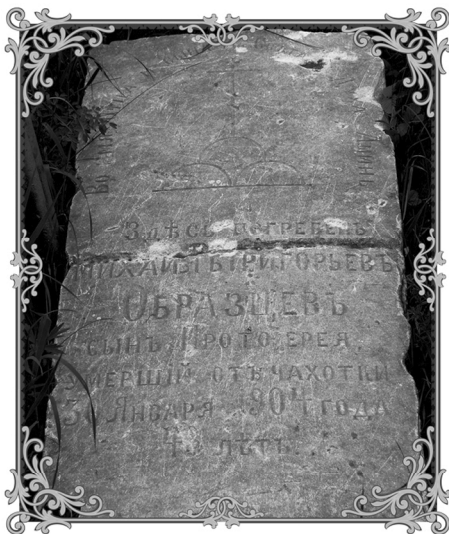 ЗДѢСЬ ПОГРЕБЕНЪ
МИХАИЛЪ ГРИГОРЬЕВЪ
ОБРАЗЦЕВЪ
СЫНЪ ПРОТОІЕРЕЯ
УМЕРШІЙ ОТЪ ЧАХОТКИ
ЯНВАРЯ 1904 ГОДА
ЛѢТЪ.